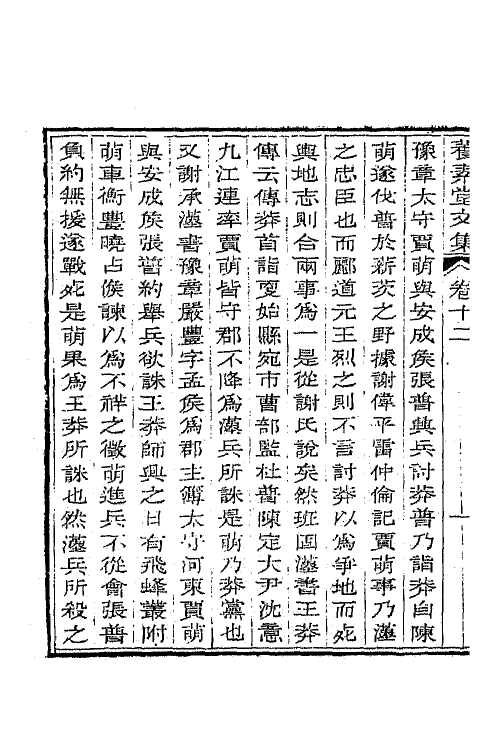 養素堂文集 卷十二 一
豫章太守賈萌與安成侯張普興兵討莽普乃詣莽自陳
萌遂伐普於新茨之野據謝偉平雷仲倫記賈萌事乃漢
之忠臣也而酈道元王烈之則不言討莽以爲爭地而死
輿地志則合兩事爲一是從謝氏說矣然班固漢書王莽
傳云傳莽首詣更始縣宛市曹部監杜普陳定大尹沈意
九江連率賈萌皆守郡不降爲漢兵所誅是萌乃莽黨也
又謝承漢書豫章嚴豐字孟侯爲郡主簿太守河東賈萌
與安成侯張普約舉兵欲誅王莽師興之日有飛蜂叢附
萌車衡豐曉占候諫以爲不祥之徵萌進兵不從會張普
負約無援遂戰死是萌果爲王莽所誅也然漢兵所殺之